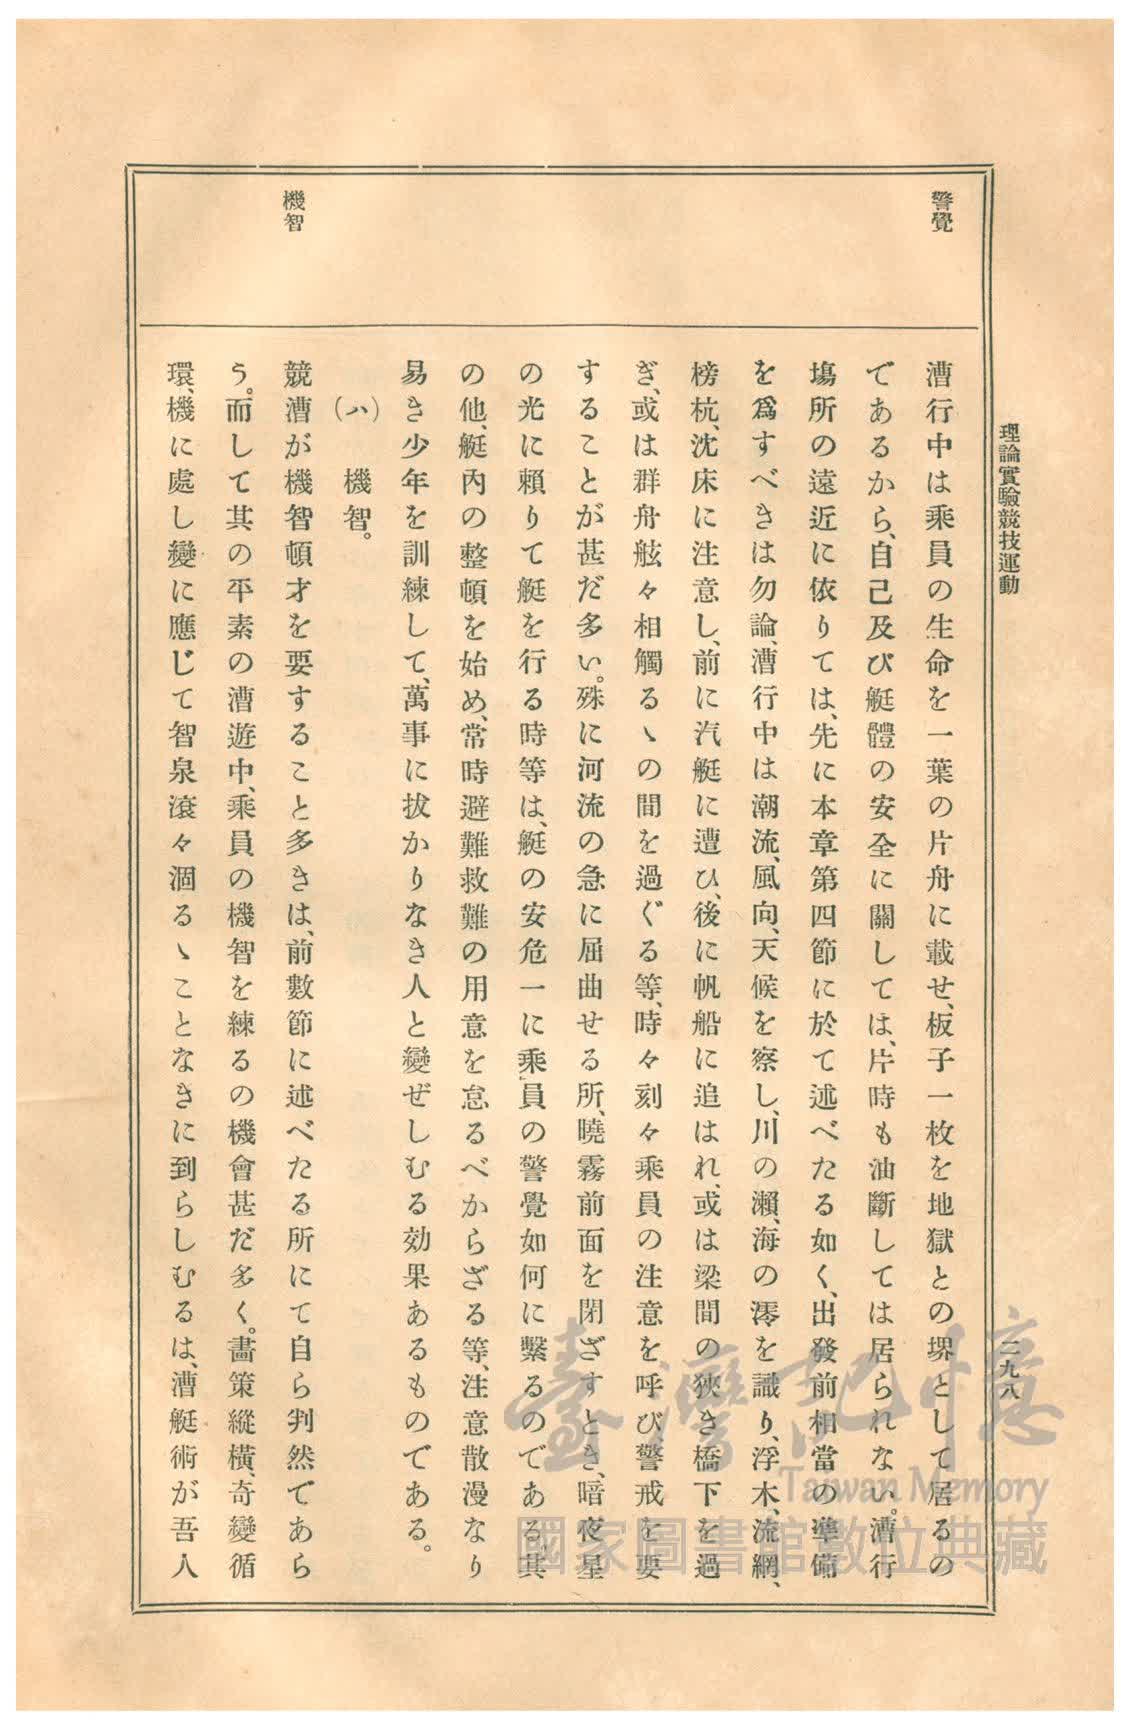 理論實驗競技運動
二九八
警覺
漕行中は乘員の生命を一葉の片舟に載せ、板子一枚を地獄との堺として居るの
であるから、自己及び艇體の安全に關しては、片時も油斷しては居られない。漕行
塲所の遠近に依りては、先に本章第四節に於て述べたる如く、出發前相當の準備
を爲すべきは勿論、漕行中は潮流、風向、天候を察し、川の瀨、海の澪を識り、浮木、流網、
榜杭、沈床に注意し、前に汽艇に遭ひ、後に帆船に追はれ、或は梁間の狹き橋下を過
ぎ、或は群舟舷々相觸るゝの間を過ぐる等、時々刻々乘員の注意を呼び、警戒を要
することが甚だ多い。殊に河流の急に屈曲せる所、曉霧前面を閉ざすとき、暗夜星
の光に賴りて艇を行る時等は、艇の安危一に乘員の警覺如何に繫るのである。其
の他、艇內の整頓を始め、常時避難救難の用意を怠るべからざる等、注意散漫なり
易き少年を訓練して、萬事に拔かりなき人と變ぜしむる効果あるものである。
(ハ) 機智。
機智
競漕が機智頓才を要すること多きは、前數節に述べたる所にて自ら判然であら
う。而して其の平素の漕遊中、乘員の機智を練るの機會甚だ多く。畵策縱橫、奇變循
環、機に處し變に應じて智泉滾々涸るゝことなきに到らしむるは、漕艇術が吾人
臺灣記憶
Taiwan Memory
國家圖書館數位典藏